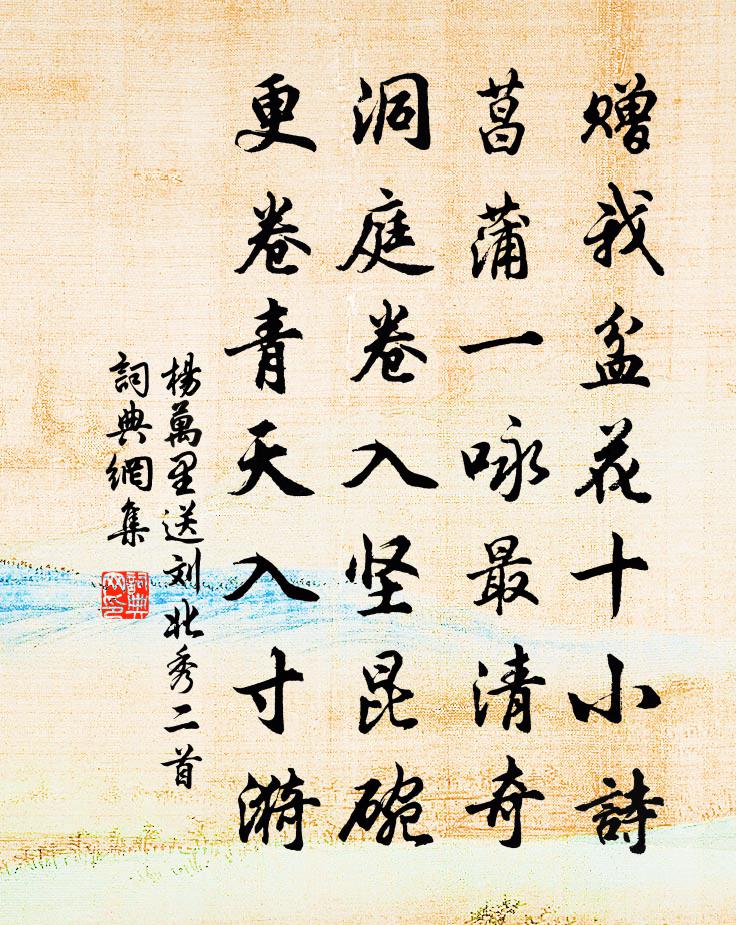 赠我盆花十小詩
菖蒲一咏最清奇
洞庭卷入坚昆碗
更卷青天入寸漪
楊萬里送刘北秀二首
詞典網集
詞典
网印